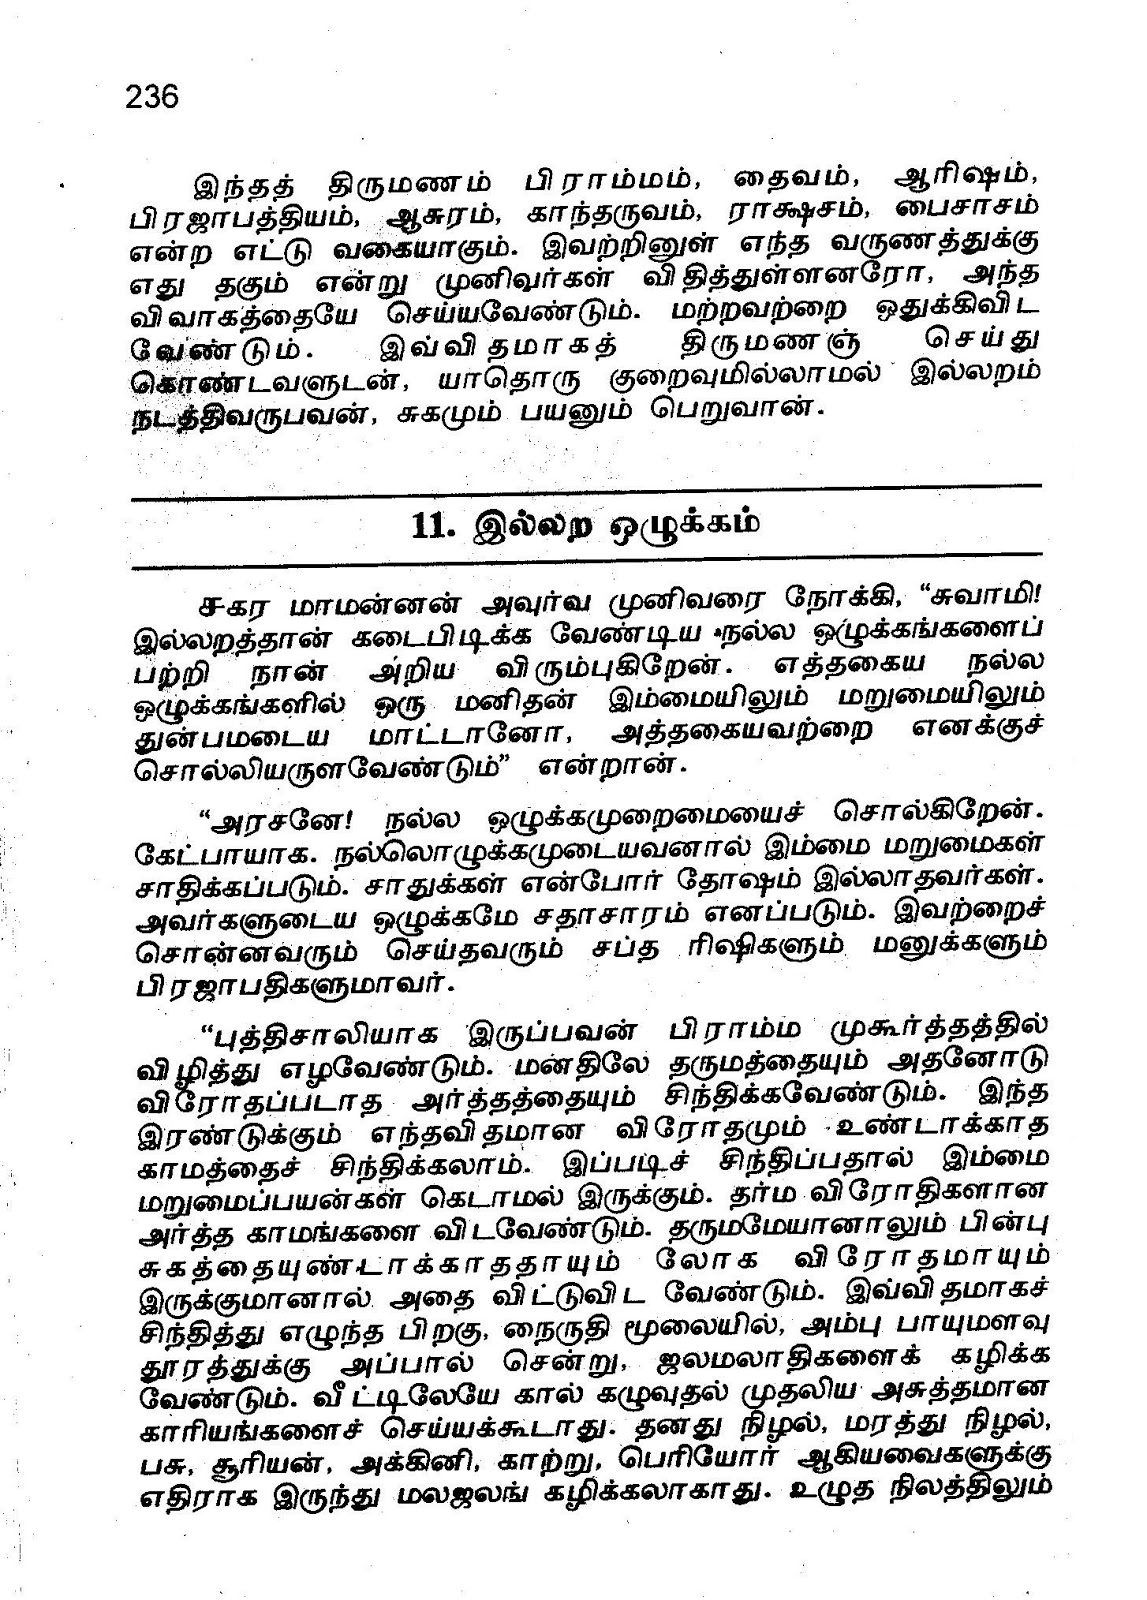 236
இந்தத் திருமணம் பிராம்மம், தைவம், ஆரிஷம்,
பிரஜாபத்தியம், ஆசுரம், காந்தருவம், ராக்ஷசம், பைசாசம்
என்ற எட்டு வகையாகும். இவற்றினுள் எந்த வருணத்துக்கு
எது தகும் என்று முனிவர்கள் விதித்துள்ளனரோ, அந்த
விவாகத்தையே செய்யவேண்டும். மற்றவற்றை ஒதுக்கிவிட
வேண்டும். இவ்விதமாகத் திருமணஞ் செய்து
கொண்டவளுடன், யாதொரு குறைவுமில்லாமல் இல்லறம்
நடத்திவருபவன், சுகமும் பயனும் பெறுவான்.
11. இல்லற ஒழுக்கம்
சகர மாமன்னன் அவுர்வ முனிவரை நோக்கி, “சுவாமி!
இல்லறத்தான் கடைபிடிக்க வேண்டிய நல்ல ஒழுக்கங்களைப்
பற்றி நான் அறிய விரும்புகிறேன். எத்தகைய நல்ல
ஒழுக்கங்களில் ஒரு மனிதன் இம்மையிலும் மறுமையிலும்
துன்பமடைய மாட்டானோ, அத்தகையவற்றை எனக்குச்
சொல்லியருளவேண்டும்” என்றான்.
“அரசனே! நல்ல ஒழுக்கமுறைமையைச் சொல்கிறேன்.
கேட்பாயாக. நல்லொழுக்கமுடையவனால் இம்மை மறுமைகள்
சாதிக்கப்படும். சாதுக்கள் என்போர் தோஷம் இல்லாதவர்கள்.
அவர்களுடைய ஒழுக்கமே சதாசாரம் எனப்படும். இவற்றைச்
சொன்னவரும் செய்தவரும் சப்த ரிஷிகளும் மனுக்களும்
பிரஜாபதிகளுமாவர்.
“புத்திசாலியாக இருப்பவன் பிராம்ம முகூர்த்தத்தில்
விழித்து எழவேண்டும். மனதிலே தருமத்தையும் அதனோடு
விரோதப்படாத அர்த்தத்தையும் சிந்திக்கவேண்டும். இந்த
இரண்டுக்கும் எந்தவிதமான விரோதமும் உண்டாக்காத
காமத்தைச் சிந்திக்கலாம். இப்படிச் சிந்திப்பதால் இம்மை
மறுமைப்பயன்கள் கெடாமல் இருக்கும். தர்ம விரோதிகளான
அர்த்த காமங்களை விடவேண்டும். தருமமேயானாலும் பின்பு
சுகத்தையுண்டாக்காததாயும் லோக விரோதமாயும்
இருக்குமானால் அதை விட்டுவிட வேண்டும். இவ்விதமாகச்
சிந்தித்து எழுந்த பிறகு, நைருதி மூலையில், அம்பு பாயுமளவு
தூரத்துக்கு அப்பால் சென்று, ஜலமலாதிகளைக் கழிக்க
வேண்டும். வீட்டிலேயே கால் கழுவுதல் முதலிய அசுத்தமான
காரியங்களைச் செய்யக்கூடாது. தனது நிழல், மரத்து நிழல்,
பசு, சூரியன், அக்கினி, காற்று, பெரியோர் ஆகியவைகளுக்கு
எதிராக இருந்து மலஜலங் கழிக்கலாகாது. உழுத நிலத்திலும்